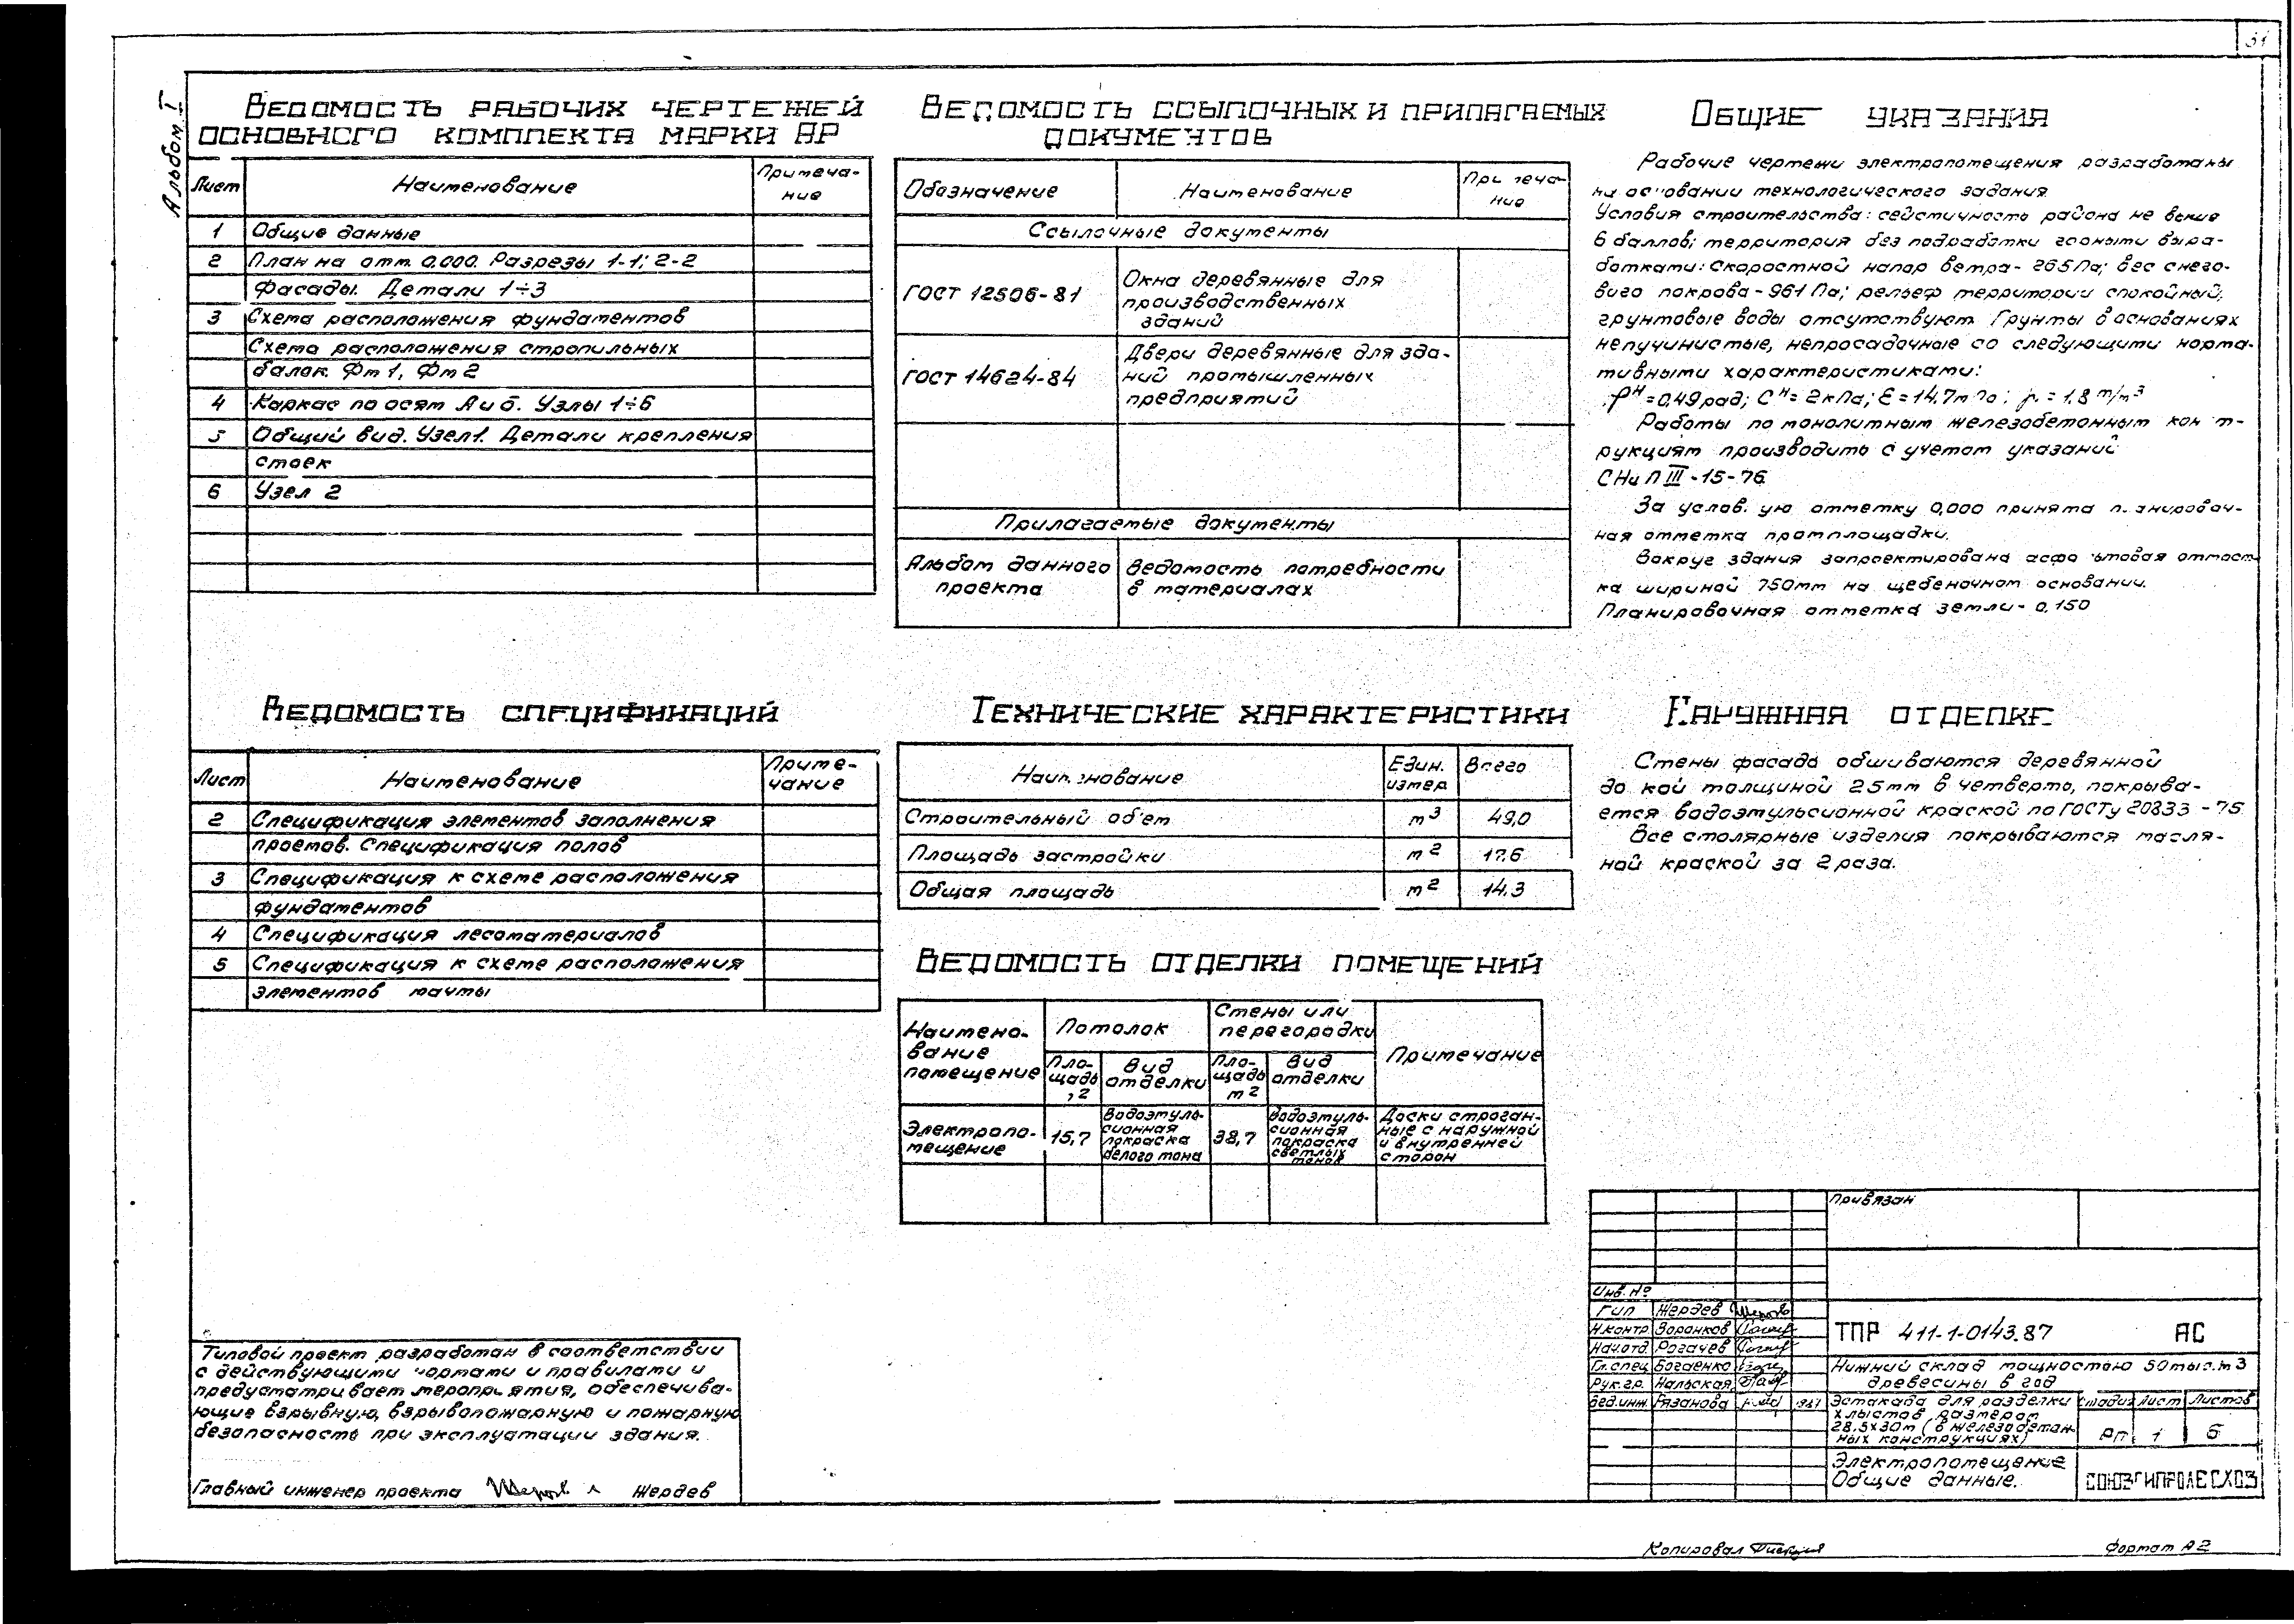 31
Альбом I
Ведомость рабочих чертежей
основного комплекта марки АР
Лист Наименование Примеча-
ние
1 Общие данные
2 План на отм. 0.000. Разрезы 1-1; 2-2
Фасады. Детали 1÷3
3 Схема расположения фундаментов
Схема расположения стропильных
балок. Фм 1, Фм 2
4 Каркас по осям А и Б. Узлы 1÷6
5 Общий вид. Узел 1. Детали крепления
стоек
6 Узел 2
Ведомость ссылочных и прилагаемых
документов
Обозначение Наименование Примеча-
ние
Ссылочные документы
ГОСТ 12506-81 Окна деревянные для
производственных
зданий
ГОСТ 14624-84 Двери деревянные для зда-
ний промышленных
предприятий
Прилагаемые документы
Альбом данного
проекта
Ведомость потребности
в материалах
Общие указания
Рабочие чертежи электропомещения разработаны
на основании технологического задания
Условия строительства: сейсмичность района не выше
6 баллов; территория без подработки горными выра-
ботками: Скоростной напор ветра - 265 Па; вес снего-
вого покрова - 961 Па; рельеф территории спокойный,
грунтовые воды отсутствуют. Грунты в основаниях
непучинистые, непросадочные со следующими норма-
тивными характеристиками:
φн = 0,49 рад; Cн = 2 кПа; E = 14,7 мПа; = 1,8 т/м3
Работы по монолитным железобетонным конст-
рукциям производить с учетом указаний
СНиП III-15-76.
За условную отметку 0,000 принята планировоч-
ная отметка промплощадки.
Вокруг здания запроектирована асфальтовая отмост-
ка шириной 750мм на щебеночном основании.
Планировочная отметка земли - 0,150
Ведомость спецификаций
Лист Наименование Приме-
чание
2 Спецификация элементов заполнения
проемов. Спецификация полов
3 Спецификация к схеме расположения
фундаментов
4 Спецификация лесоматериалов
5 Спецификация к схеме расположения
элементов мачты
Технические характеристики
Наименование Един.
измер. Всего
Строительный объем м3 49,0
Площадь застройки м2 17.6
Общая площадь м2 14.3
Наружная отделке
Стены фасада обшиваются деревянной
доской толщиной 25мм в четверть, покрыва-
ется водоэмульсионной краской по ГОСТу 20833-75
Все столярные изделия покрываются масля-
ной краской за 2 раза.
Ведомость отделки помещений
Наимено-
вание
помещение
Потолок
Стены или
перегородки
Примечание
Пло-
щадь
м2
Вид
отделки
Пло-
щадь
м2
Вид
отделки
Электропо-
мещение
15,7
Водоэмуль-
сионная
покраска
белого тона
38,7
Водоэмуль-
сионная
покраска
светлых
тонов
Доски строган-
ные с наружной
и внутренней
сторон
Типовой проект разработан в соответствии
с действующими нормами и правилами и
предусматривает мероприятия, обеспечива-
ющие взрывную, взрывопожарную и пожарную
безопасность при эксплуатации здания.
Главный инженер проекта Жердев
Привязан
Инв. №
ГИП Жердев
Н.контр. Воронков
Нач.отд. Рогачев
Гл.спец. Богаенко
Рук.гр. Нальская
Вед.инж. Рязанова 1987
ТПР 411-1-0143.87 АС
Нижний склад мощностью 50 тыс. м3
древесины в год
Эстакада для разделки
хлыстов размером
28,5х30м (в железобетон-
ных конструкциях)
Стадия Лист Листов
РП 1 6
Электропомещение
Общие данные.
СОЮЗГИПРОЛЕСХОЗ
Копировал
Формат А2